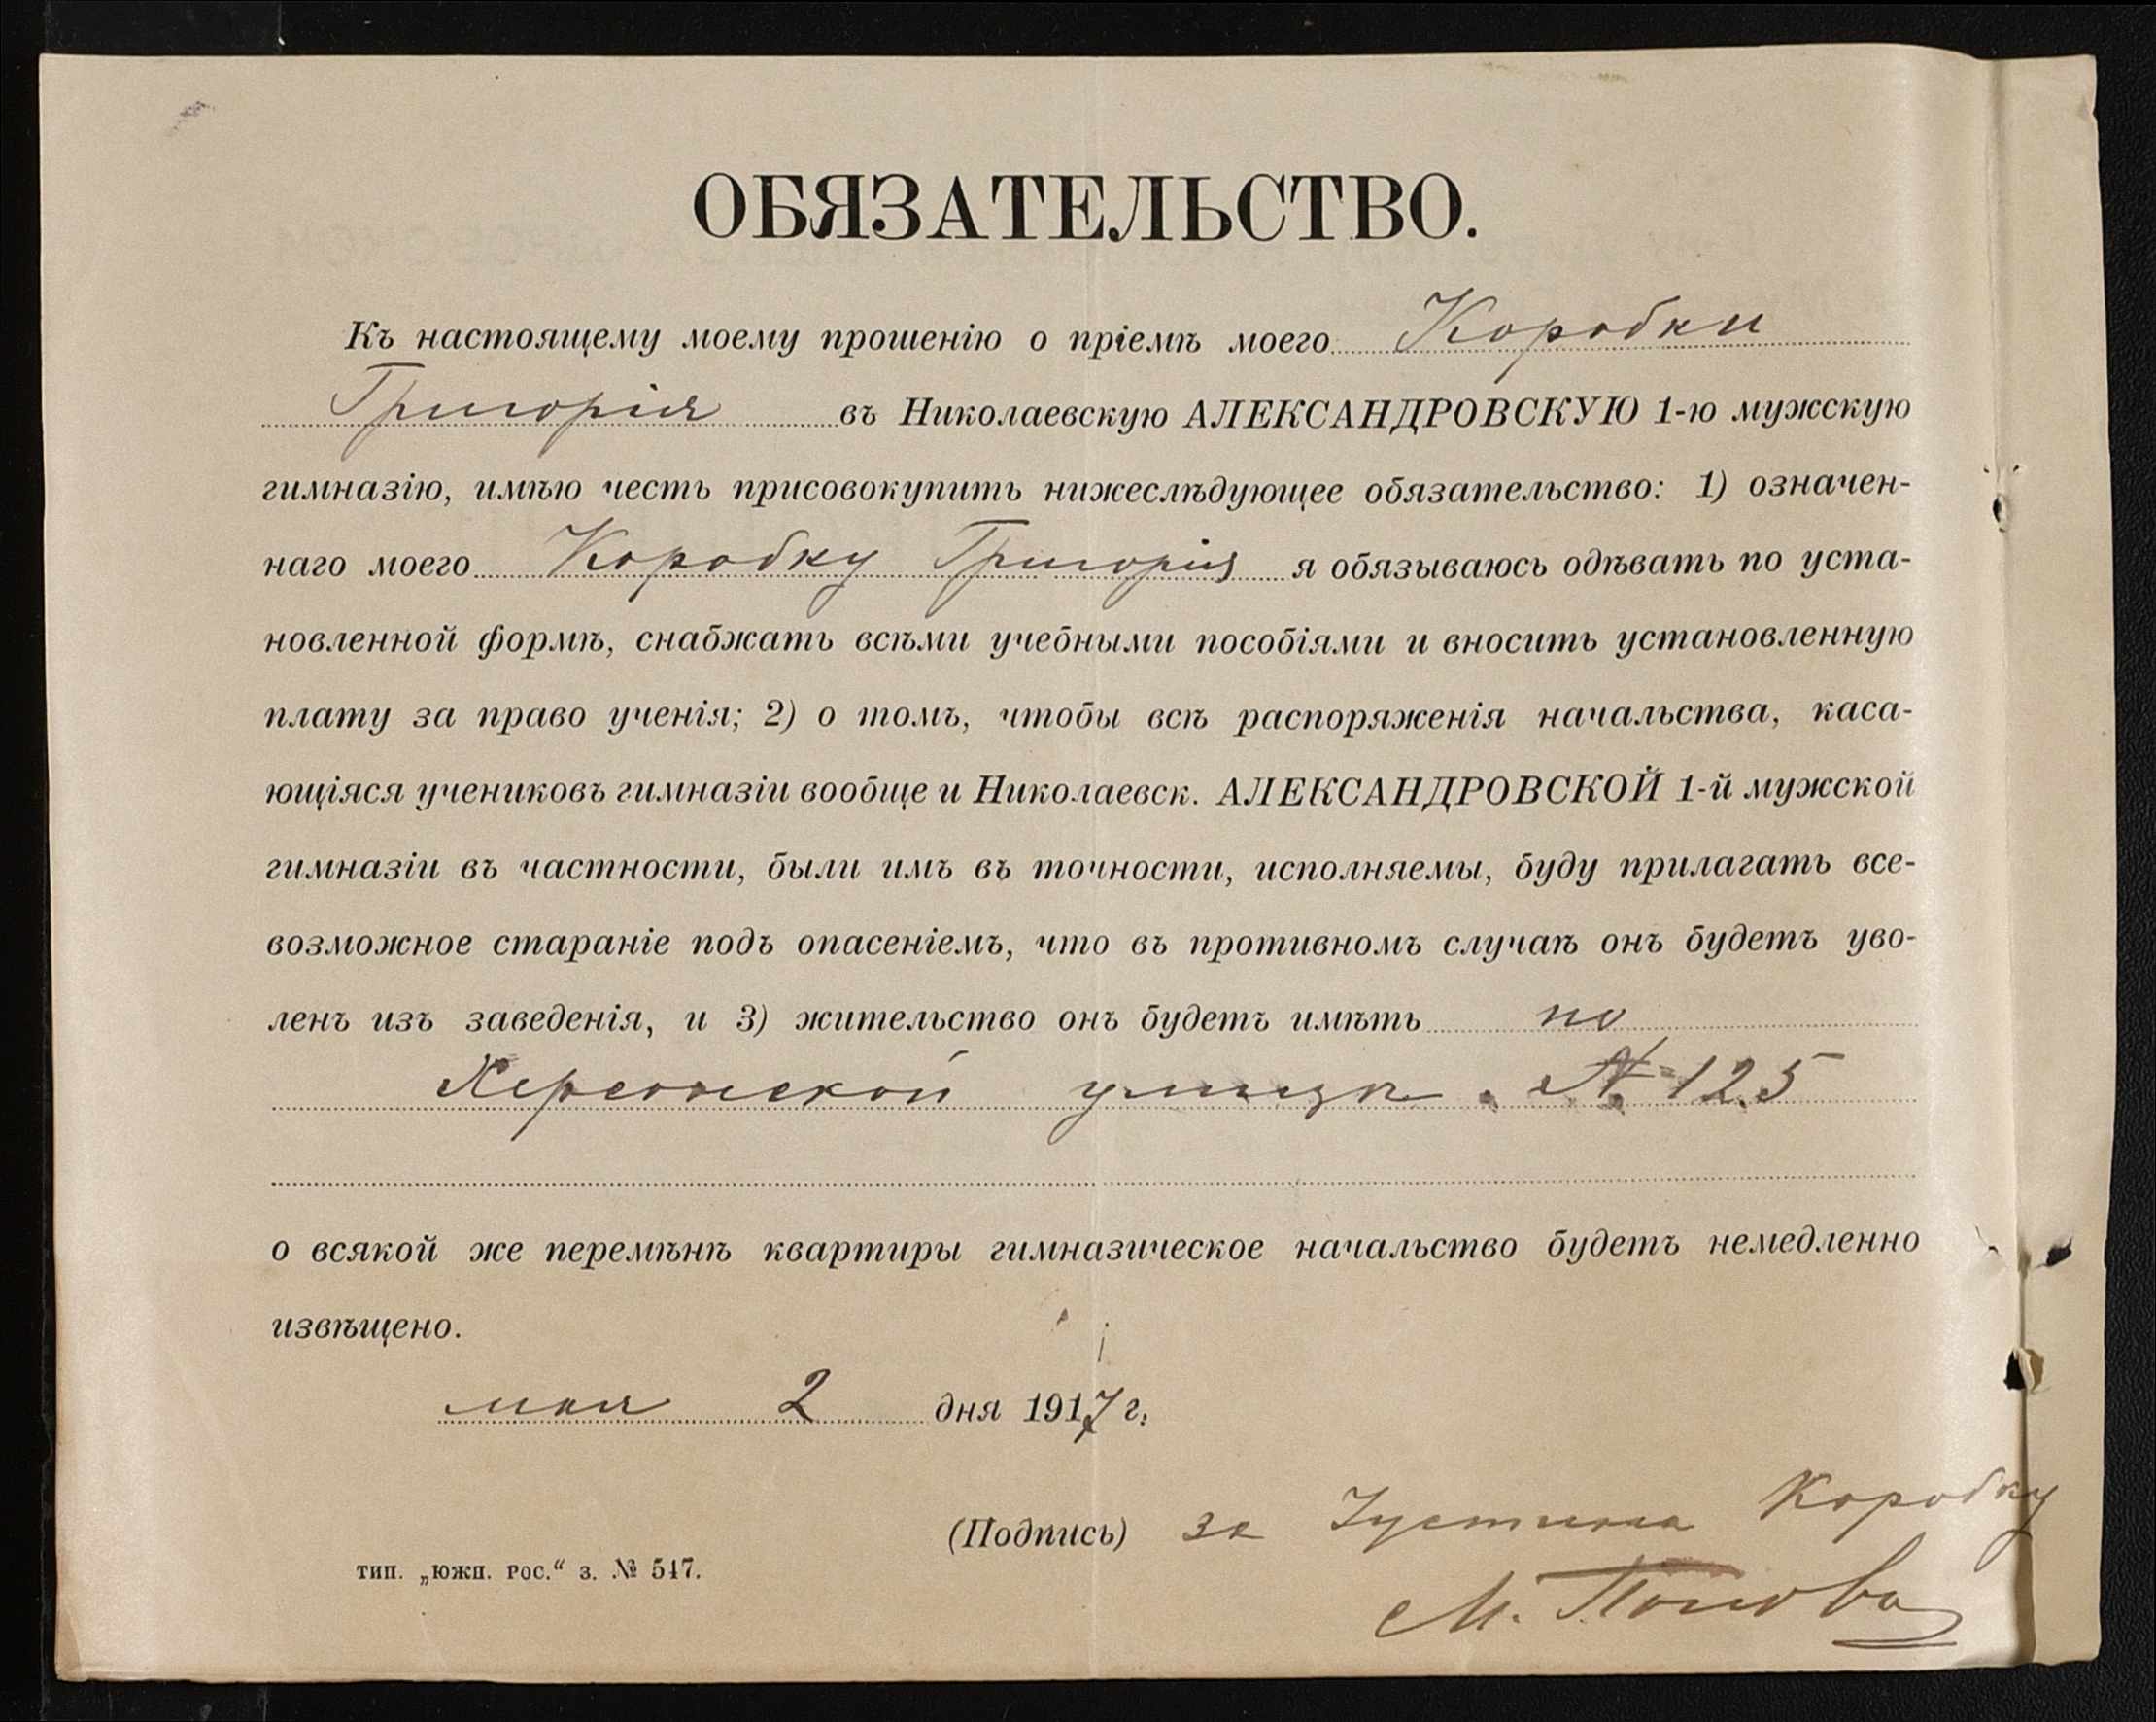 ОБЯЗАТЕЛЬСТВО.
Къ настоящему моему прошенію о пріемѣ моего Коробки
Григорія въ Николаевскую АЛЕКСАНДРОВСКУЮ 1-ю мужскую
гимназію, имѣю честь присовокупить нижеслѣдующее обязательство: 1) означен-
наго моего Коробку Григорія я обязываюсь одѣвать по уста-
новленной формѣ, снабжать всѣми учебными пособіями и вносить установленную
плату за право ученія; 2) о томъ, чтобы всѣ распоряженія начальства, каса-
ющіяся учениковъ гимназіи вообще и Николаевск. АЛЕКСАНДРОВСКОЙ 1-й мужской
гимназіи въ частности, были имъ въ точности, исполняемы, буду прилагать все-
возможное стараніе подъ опасеніемъ, что въ противномъ случаѣ онъ будетъ уво-
ленъ изъ заведенія, и 3) жительство онъ будетъ имѣть по
Херсонской улицѣ № 125
о всякой же перемѣнѣ квартиры гимназическое начальство будетъ немедленно
извѣщено.
мая 2 дня 1917 г.
(Подпись) за Іустина Коробку
М. Попова
тип. „южн. рос.“ з. № 547.